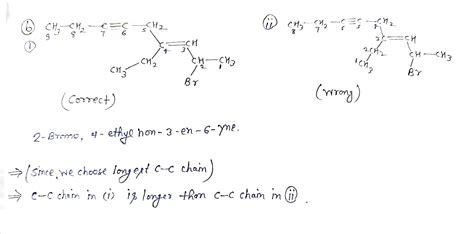 (b) CH3-CH2-C≡C-CH2
9 8 7 6 5
(i)
C=CH
4 3
CH3 CH2 CH-CH3
2 1
Br
(Correct)
(ii) CH3-CH2-C≡C-CH2
C=CH
CH2 CH-CH3
CH3 Br
(wrong)
2-Bromo, 4-ethyl non-3-en-6-yne.
⇒ (Since, we choose longest C-C chain)
⇒ C-C chain in (i) is longer than C-C chain in (ii).